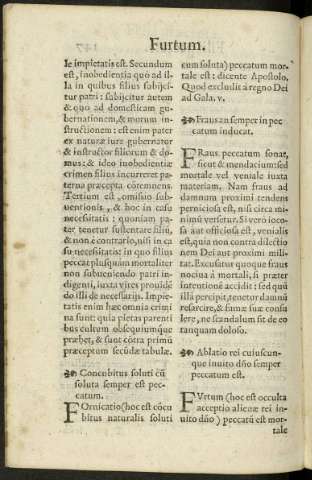 Furtum.
le impietatis est. Secundum
est, inobedientia quò ad il-
la in quibus filius subijci-
tur patri: subijcitur autem
& quo ad domesticam gu-
bernationem, & morum in-
structionem: est enim pater
ex naturæ iure gubernator
& instructor filiorum & do-
mus: & ideo inobedientiæ
crimen filius incurreret pa-
terna præcepta cōtemnens.
Tertium est, omissio sub-
uentionis, & hoc in casu
necessitatis: quoniam pa-
ter tenetur sustentare filiū,
& non è contrario, nisi in ca
su necessitatis: in quo filius
peccat plusquàm mortaliter
non subueniendo patri in-
digenti, iuxta vires prouidē
do illi de necessarijs. Impie-
tatis enim hæc omnia crimi
na sunt: quia pietas parenti
bus cultum obsequiumque
præbet, & sunt cōtra primū
præceptum secūdæ tabulæ.
Concubitus soluti cū
soluta semper est pec-
catum.
FOrnicatio (hoc est cōcu
bitus naturalis soluti
cum soluta) peccatum mor-
tale est: dicente Apostolo,
Quod excludit à regno Dei
ad Gala. v.
Fraus an semper in pec
catum inducat.
FRaus peccatum sonat,
sicut & mendacium: sed
mortale vel veniale iuxta
materiam. Nam fraus ad
damnum proximi tendens
perniciosa est, nisi circa mi-
nimū versetur. Si verò ioco-
sa aut officiosa est, venialis
est, quia non contra dilectio
nem Dei aut proximi mili-
tat. Excusatur quoque fraus
nociua à mortali, si præter
intentionē accidit: sed quū
illā percipit, tenetur damnū
resarcire, & famæ suæ consu
lere, ne scandalum sit de eo
tanquam doloso.
Ablatio rei cuiuscun-
que inuito dño semper
peccatum est.
FVrtum (hoc est occulta
acceptio alienæ rei in-
uito dño) peccatū est mor-
tale